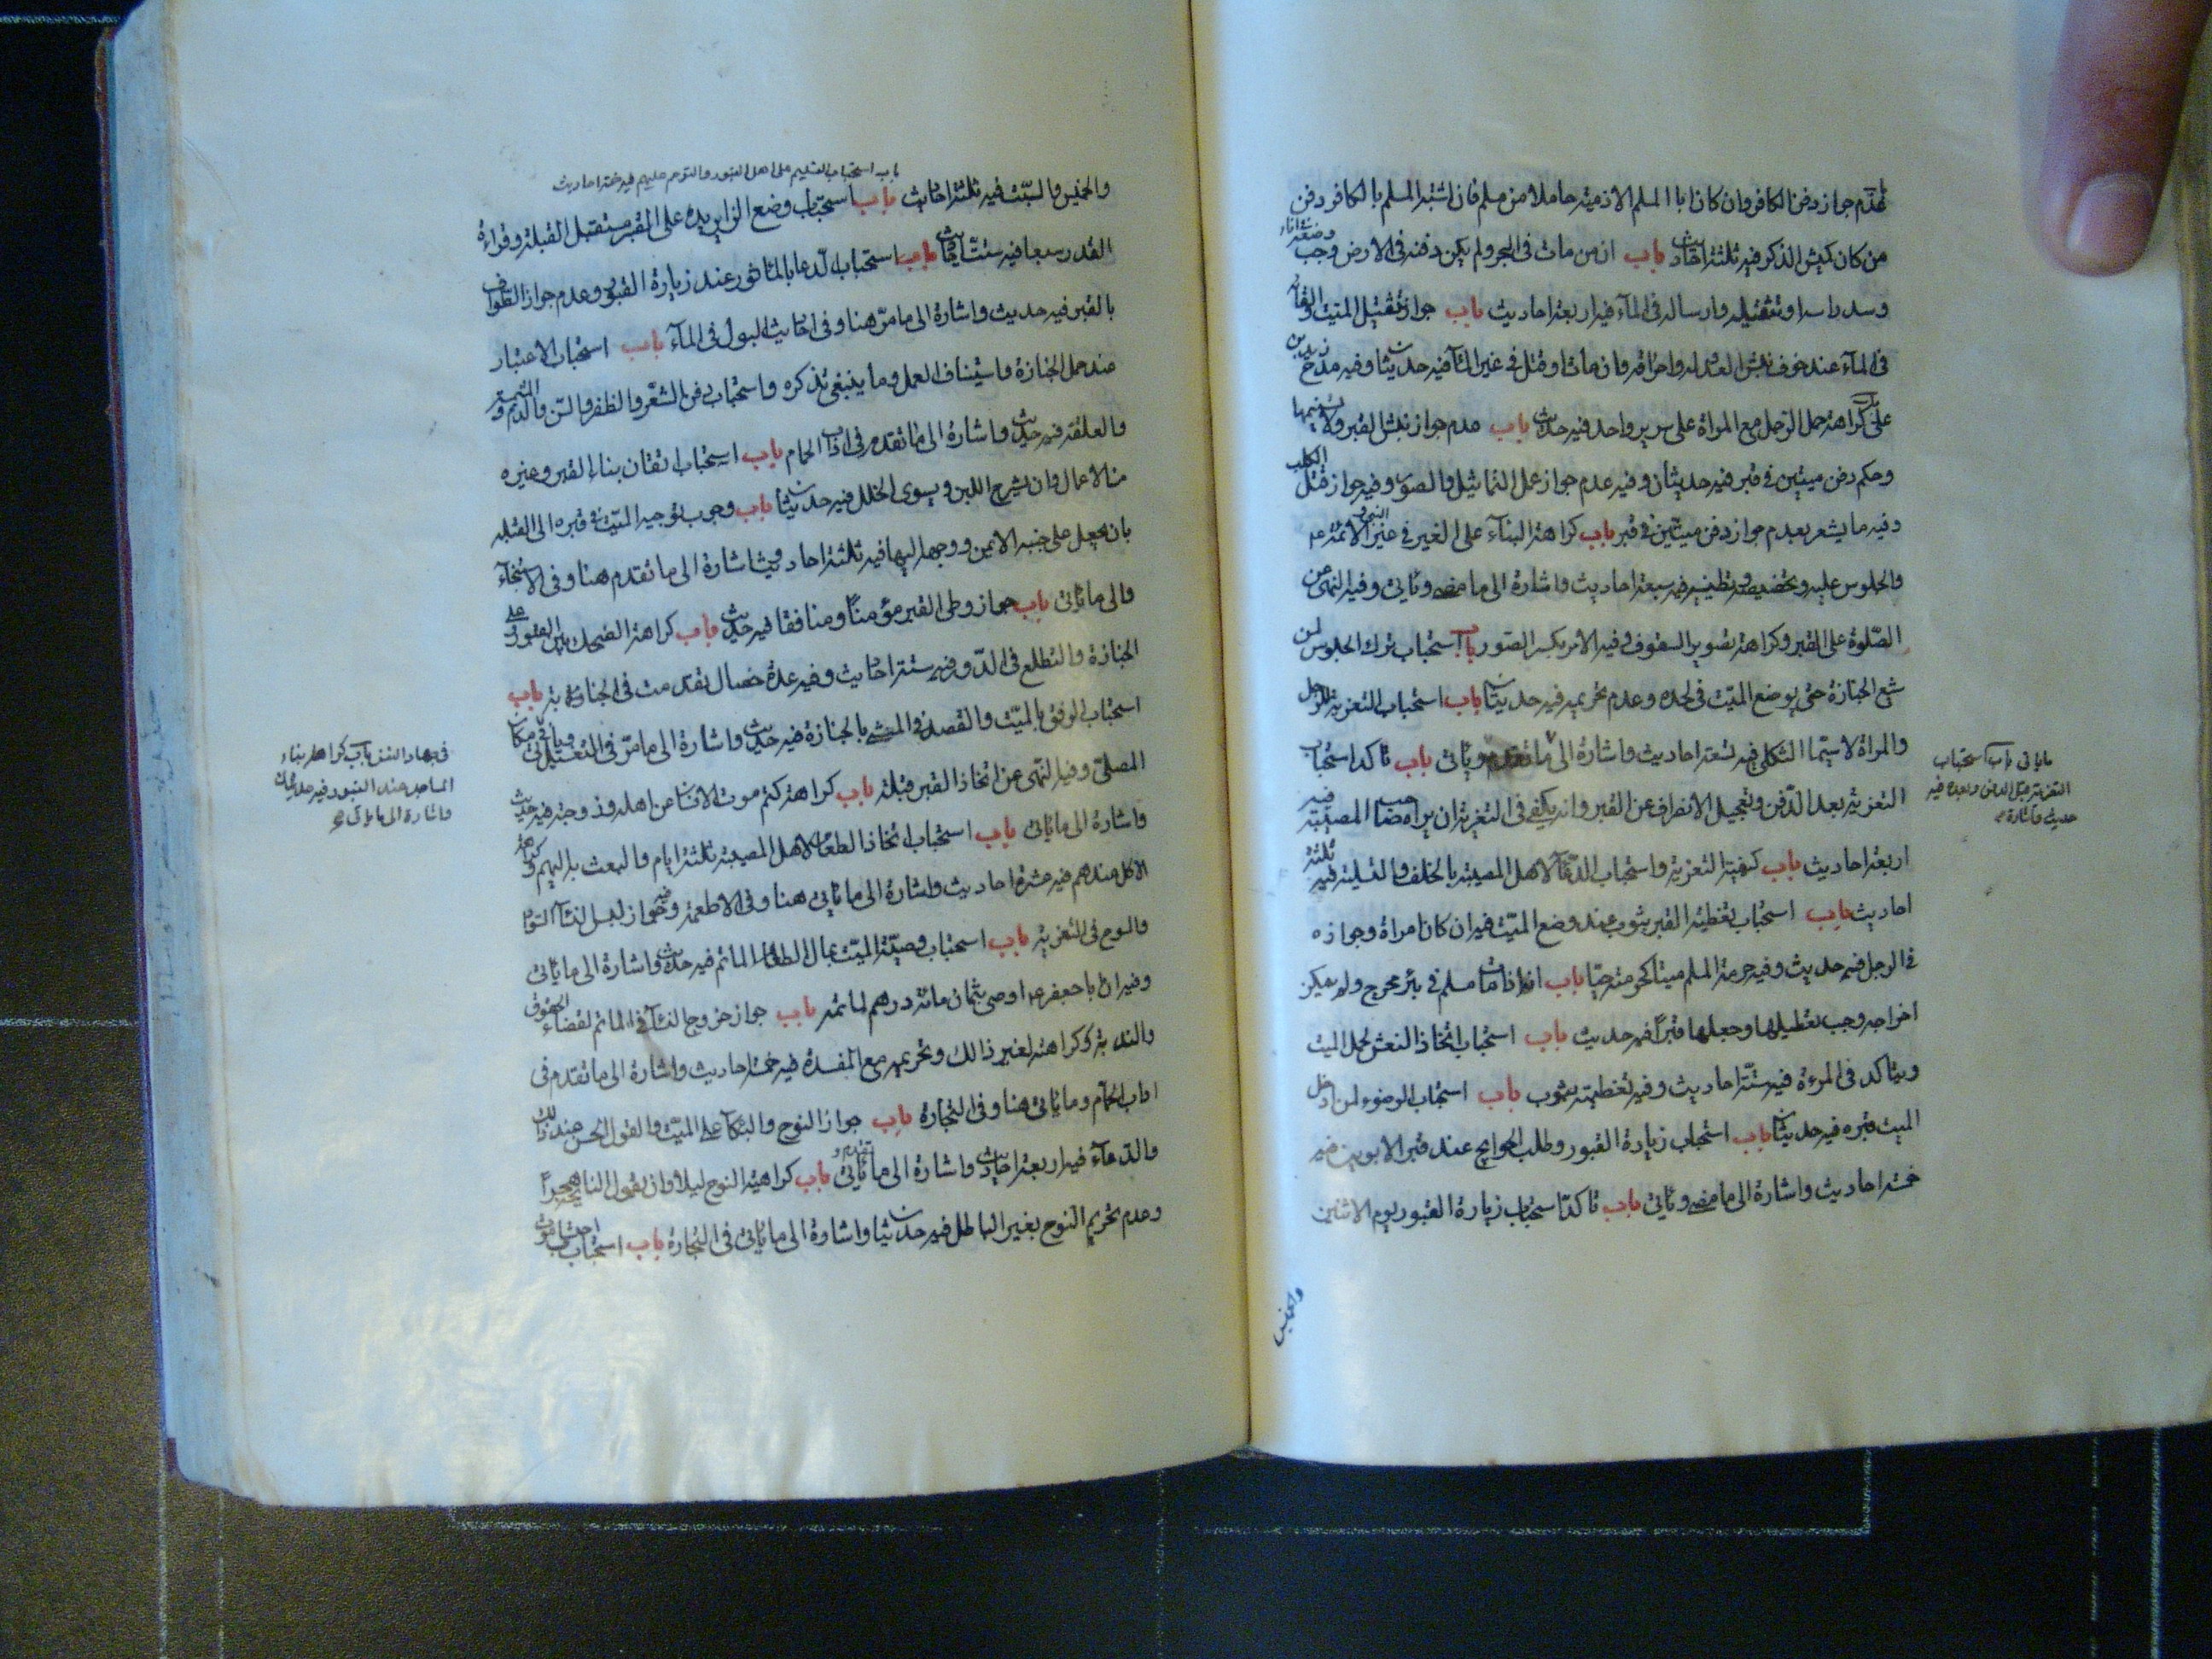 عدم جواز دفن الكافر وان كان ابا المسلم الا ذمية حاملا من مسلم فان اشتبه المسلم بالكافر دفن
من كان كميش الذكر فيه ثلثة احاديث باب ان من مات في البحر ولم يكن دفنه في الارض وجب وضعه في اناء
وسد راسه او تثقيله وارساله في الماء فيه اربعة احاديث باب جواز تثقيل الميت والقائه
في الماء عند خوف نبش العدو له واحراقه وان مات او قتل في غير الماء فيه حديثان وفيه مدح زيد بن
علي باب كراهة حمل الرجل مع المراة على سرير واحد فيه حديث باب عدم جواز نبش القبر ولا تسنيمها
وحكم دفن ميتين في قبر فيه حديثان وفيه عدم جواز عمل التماثيل والصور وفيه جواز قتل الكلب
وفيه ما يشعر بعدم جواز دفن ميتين في قبر باب كراهة البناء على القبر في غير النبي والائمة ع
والجلوس عليه وتجصيصه وتطيينه فيه سبعة احاديث واشارة الى ما مضى وياتي وفيه النهي عن
الصلوة على القبر وكراهة تصوير السقوف وفيه الامر بكسر الصور باب استحباب ترك الجلوس لمن
شيع الجنازة حتى يوضع الميت في لحده وعدم تحريمه فيه حديثان باب استحباب التعزية للرجل
والمراة لا سيما الثكلى فيه تسعة احاديث واشارة الى ما تقدم وياتي باب تاكد استحباب
التعزية بعد الدفن وتعجيل الانصراف عن القبر وانه يكفي في التعزية ان يراه صاحب المصيبة فيه
اربعة احاديث باب كيفية التعزية واستحباب الدعاء لاهل المصيبة بالخلف والتسلية فيه ثلثة
احاديث باب استحباب تغطية القبر بثوب عند وضع الميت فيه ان كان امراة وجوازه
في الرجل فيه حديث وفيه حرمة المسلم ميتا كحرمته حيا باب انه اذا مات مسلم في بئر محرج ولم يمكن
اخراجه وجب تعطيلها وجعلها قبرا فيه حديث باب استحباب اتخاذ النعش لحمل الميت
ويتاكد في المرءة فيه ستة احاديث وفيه تغطيته بثوب باب استحباب الوضوء لمن ادخل
الميت قبره فيه حديثان باب استحباب زيارة القبور وطلب الحوايج عند قبر الابوين فيه
خمسة احاديث واشارة الى ما مضى وياتي باب تاكد استحباب زيارة القبور يوم الاثنين
والخميس
ما ياتي باب استحباب
التعزية قبل الدفن وبعده فيه
حديث واشارة
باب استحباب التسليم على اهل القبور والترحم عليهم فيه خمسة احاديث
والخميس والسبت فيه ثلثة احاديث باب استحباب وضع الزاير يده على القبر مستقبل القبلة وقراءة
القدر سبعا فيه ستة احاديث باب استحباب الدعا بالماثور عند زيارة القبور وعدم جواز الطواف
بالقبر فيه حديث واشارة الى ما مر هنا وفي احاديث البول في الماء باب استحباب الاعتبار
عند حمل الجنازة واستيناف العمل وما ينبغي تذكره واستحباب دفن الشعر والظفر والسن والدم والمشيمة
والعلقة فيه حديث واشارة الى ما تقدم في اداب الحمام باب استحباب اتقان بناء القبر وغيره
من الاعمال وان يشرج اللبن ويسوى الخلل فيه حديثان باب وجوب توجيه الميت في قبره الى القبلة
بان يجعل على جنبه الايمن ووجهه اليها فيه ثلثة احاديث واشارة الى ما تقدم هنا وفي الاستنجاء
والى ما ياتي باب جواز وطي القبر مؤمنا ومنافقا فيه حديث باب كراهة الضحك بين القبور وعلى
الجنازة والتطلع في الدور فيه ستة احاديث وفيه عدة خصال تقدمت في الجنازة باب
استحباب الرفق بالميت والقصد في المشي بالجنازة فيه حديث واشارة الى ما مر في التغسيل وياتي في مكان
المصلي وفيه النهي عن اتخاذ القبر قبلة باب كراهة كتم موت الانسان عن اهله وزوجته فيه حديث
واشارة الى ما ياتي باب استحباب اتخاذ الطعام لاهل المصيبة ثلثة ايام والبعث به اليهم وكراهة
الاكل عندهم فيه عشرة احاديث واشارة الى ما ياتي هنا وفي الاطعمة وفيه جواز لبس النساء السواد
والمسوح في التعزية باب استحباب وصية الميت بمال لطعام الماتم فيه حديث واشارة الى ما ياتي
وفيه ان ابا جعفر ع اوصى بثمان مائة درهم لماتمه باب جواز خروج النساء في الماتم لقضاء الحقوق
والندبة وكراهته لغير ذالك وتحريمه مع المفسدة فيه خمسة احاديث واشارة الى ما تقدم في
اداب الحمام وما ياتي هنا وفي التجارة باب جواز النوح والبكاء على الميت والقول الحسن عند ذلك
والدعاء فيه اربعة احاديث واشارة الى ما تقدم وياتي باب كراهية النوح ليلا وان تقول النايحة هجرا
وعدم تحريم النوح بغير الباطل فيه حديثان واشارة الى ما ياتي في التجارة باب استحباب احتساب موت
في جهاد النفس باب كراهة بناء
المساجد عند القبور فيه حديثان
واشارة الى ما ياتي